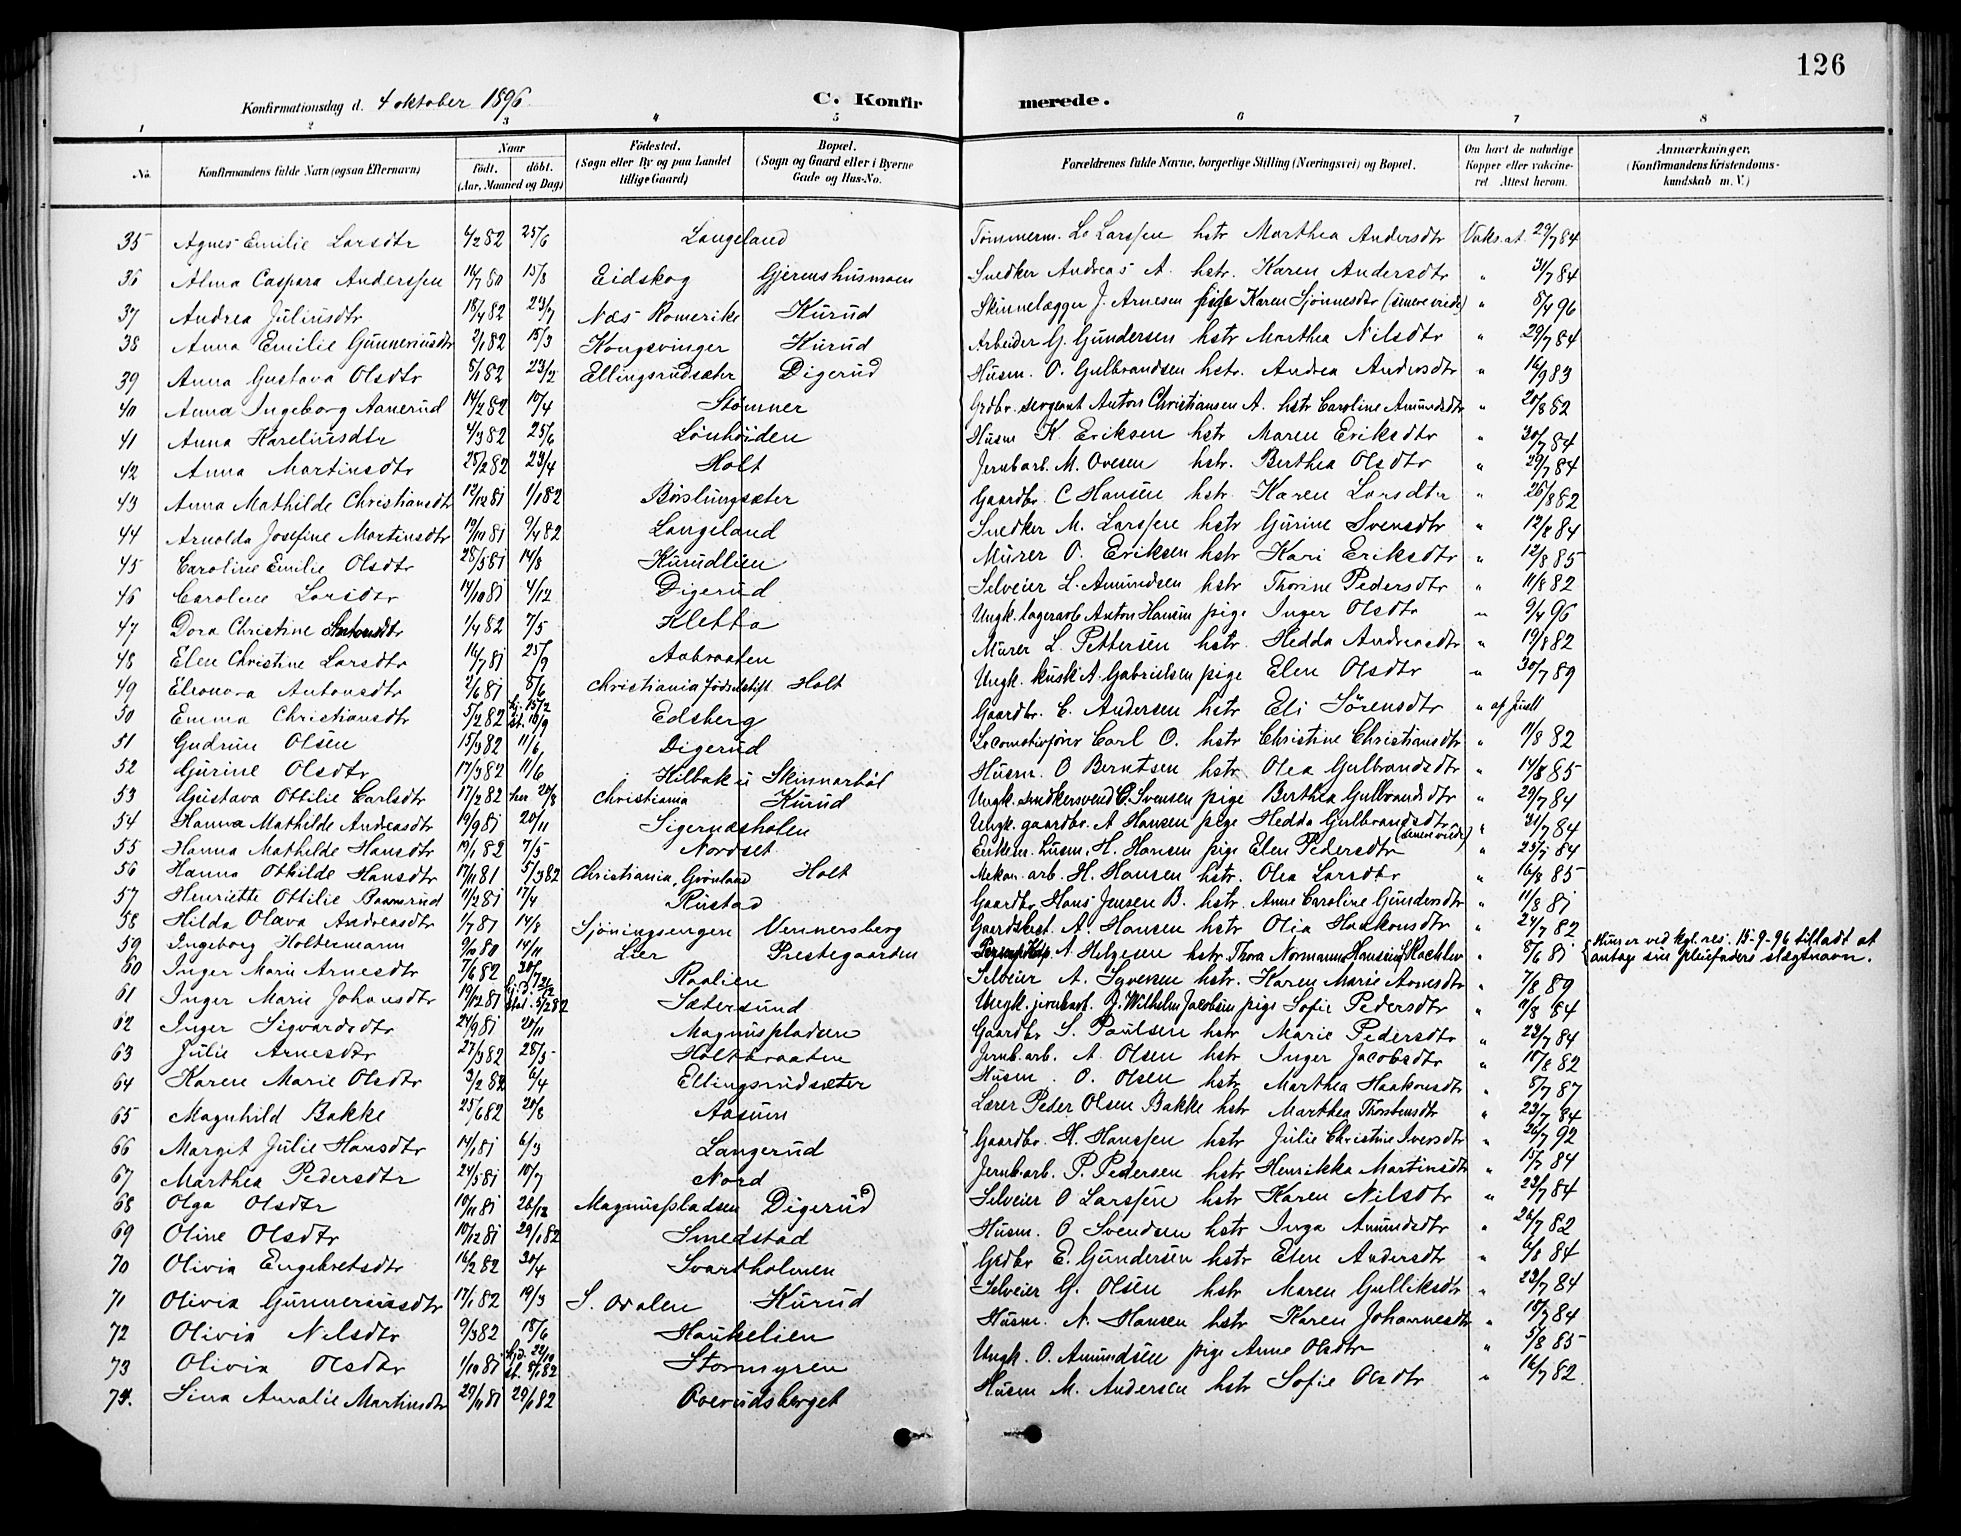 126
Konfirmationsdag d. 4 oktober 1896. C. Konfirmerede.
1 2 3 4 5 6 7 8
No. Konfirmandens fulde Navn (ogsaa Efternavn) Naar født. døbt. (Aar, Maaned og Dag) Fødested. (Sogn eller By og paa Landet tillige Gaard) Bopæl. (Sogn og Gaard eller i Byerne Gade og Hus-No. Forældrenes fulde Navne, borgerlige Stilling (Næringsvei) og Bopæl. Om havt de naturlige Kopper eller vakcineret. Attest herom. Anmærkninger. (Konfirmandens Kristendomskundskab m. V.)
35 Agnes Emilie Larsdtr 4/2 82 25/6 Langeland Tømmerm. L. Larssen hstr Marthea Andersdtr Vaks. at. 29/7 84
36 Alma Caspara Anderssen 16/7 80 15/8 Eidskog Gjermshusmoen Snedker Andreas A. hstr. Karen Andersdtr " 31/7 84
37 Andrea Juliusdtr 18/4 82 23/7 Næs Romerike Kurud Skinnelægger J. Arnesen pige Karen Sjønnesdtr " 8/4 96
38 Anna Emilie Gunneriusdtr 2/1 82 15/3 Kongsvinger Kurud Arbeider G. Gundersen hstr Marthea Nilsdtr " 29/7 84
39 Anna Gustava Olsdtr 8/1 82 23/2 Ellingsrudsæter Digerud Husm. O. Gulbrandsen hstr. Andrea Andersdtr " 16/9 83
40 Anna Ingeborg Aanerud 14/2 82 10/4 Stømner Grdbr. sergeant Anton Christiansen A. hstr Caroline Amundsdtr " 20/8 82
41 Anna Kareliusdtr 4/3 82 25/6 Lønhøiden Husm K. Eriksen hstr Maren Eriksdtr " 30/7 84
42 Anna Martinsdtr 25/2 82 23/4 Holt Jernb.arb. M. Ovesen hstr. Berthea Olsdtr " 29/7 84
43 Anna Mathilde Christiansdtr 12/12 81 1/1 82 Børslungsæter Gaardbr. C Hansen hstr. Karen Larsdtr " 26/8 82
44 Arnolda Josefine Martinsdtr 19/11 81 9/4 82 Langeland Snedker M. Larssen hstr Gurine Svensdtr " 12/8 84
45 Caroline Emilie Olsdtr 28/5 81 14/8 Kurudlien Murer O. Eriksen hstr Kari Eriksdtr " 12/8 85
46 Caroline Larsdtr 14/10 81 4/12 Digerud Selveier L. Amundsen hstr Thorine Pedersdtr " 11/8 82
47 Dora Christine Antonsdtr 1/4 82 7/5 Kletta Ungk. lagerarb Anton Hansen pige Inger Olsdtr " 9/4 96
48 Elen Christine Larsdtr 16/7 81 25/9 Aabraaten Murer L. Pettersen hstr. Hedda Andreasdtr " 19/8 82
49 Eleonora Antonsdtr 2/6 81 8/6 Christiania Fødselsstift. Holt Ungk. kusk A. Gabrielsen pige Elen Olsdtr " 30/7 89
50 Emma Christiansdtr 5/2 82 hj. 15/2 st. 10/9 Edsberg Gaardbr. C. Andersen hstr Eli Sørensdtr " af Juell
51 Gudrun Olsen 15/3 82 11/6 Digerud Locomotivfører Carl O. hstr Christine Christiansdtr " 11/8 82
52 Gurine Olsdtr 17/3 82 11/6 Hilbak u Skinnarbøl Husm. O Berntsen hstr Olea Gulbrandsdtr " 14/8 85
53 Gustava Ottilie Carlsdtr 17/2 82 her 20/8 Christiania Kurud Ungk. snedkersvend C. Svensen pige Berthea Gulbrandsdtr " 29/7 84
54 Hanna Mathilde Andreasdtr 19/9 81 20/11 Sigernæsholen Ungk. gaardbr. A Hansen pige Hedda Gulbrandsdtr " 31/7 84
55 Hanna Mathilde Hansdtr 19/1 82 7/5 Nordset Enkem. husm. H. Hansen pige Elen Pedersdtr " 25/7 84
56 Hanna Othilde Hansdtr 17/11 81 5/3 82 Christiania, Grønland Holt Mekan. arb. H. Hansen hstr. Olea Larsdtr " 16/8 85
57 Henriette Ottilie Baanrud 11/2 81 17/4 Rustad Gaardbr Hans Jensen B. hstr. Anne Caroline Gundersdtr " 11/8 81
58 Hilda Olava Andreasdtr 1/7 81 14/8 Sjøningsengen Vennersberg Gaardsbest. A. Hansen hstr Olia Haakonsdtr " 24/7 82
59 Ingeborg Holtermann 9/10 80 14/11 Lier Prestegaarden A. Helgesen hstr Thora Normann Hansen " 8/6 81 Hun er ved kgl. res. 15-9-96 tilladt at
antage sin pleiefaders slægtnavn.
60 Inger Marie Arnesdtr 7/6 82 30/7 Raalien Selveier A. Syversen hstr. Karen Marie Arnesdtr " 7/8 89
61 Inger Marie Johansdtr 19/12 81 5/2 82 Sætersund Ungk. jernb.arb. J. Wilhelm Jacobsen pige Sofie Pedersdtr " 11/8 84
62 Inger Sigvardsdtr 24/9 81 20/11 Magnuspladsen Gaardbr S. Paulsen hstr Marie Pedersdtr " 23/7 84
63 Julie Arnesdtr 27/3 82 28/5 Holtbraaten Jernb.arb. A. Olsen hstr Inger Jacobsdtr " 10/8 82
64 Karen Marie Olsdtr 3/2 82 6/4 Ellingsrudsæter Husm. O. Olsen hstr Marthea Haakonsdtr " 8/7 87
65 Magnhild Bakke 25/6 82 20/8 Aasum Lærer Peder Olsen Bakke hstr Marthea Thorstensdtr " 23/7 84
66 Margit Julie Hansdtr 14/1 81 6/3 Langerud Gaardbr. H. Hanssen hstr Julie Christine Iversdtr " 26/7 92
67 Marthea Pedersdtr 24/5 81 10/7 Nord Jernb.arb. P. Pedersen hstr Henrikka Martinsdtr " 15/7 84
68 Olga Olsdtr 10/11 81 26/12 Magnuspladsen Digerud Selveier O Larssen hstr Karen Nilsdtr " 23/7 84
69 Oline Olsdtr 10/12 81 29/1 82 Smedstad Husm. O Svendsen hstr Inga Amundsdtr " 26/7 82
70 Olivia Engebretsdtr 16/2 82 30/4 Svartholmen Grdbr E. Gundersen hstr Elen Andersdtr " 6/8 84
71 Olivia Gunneriusdtr 17/1 82 19/3 S. Odalen Kurud Selveier G. Olsen hstr Maren Gulliksdtr " 23/7 84
72 Olivia Nilsdtr 9/3 82 18/6 Haukelien Husm. N. Hansen hstr Karen Johannesdtr " 18/7 84
73 Olivia Olsdtr 1/10 81 hj. 22/10 st. 8/1 82 Stormyren Ungk. O. Amundsen pige Anne Olsdtr " 5/8 85
74. Sina Amalie Martinsdtr 29/11 81 29/1 82 Overudsberget Husm M. Andersen hstr Sofie Olsdtr " 16/7 82